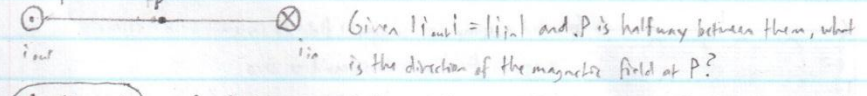 P
Given |i out| = |i in| and P is halfway between them, what
i out
i in
is the direction of the magnetic field at P?